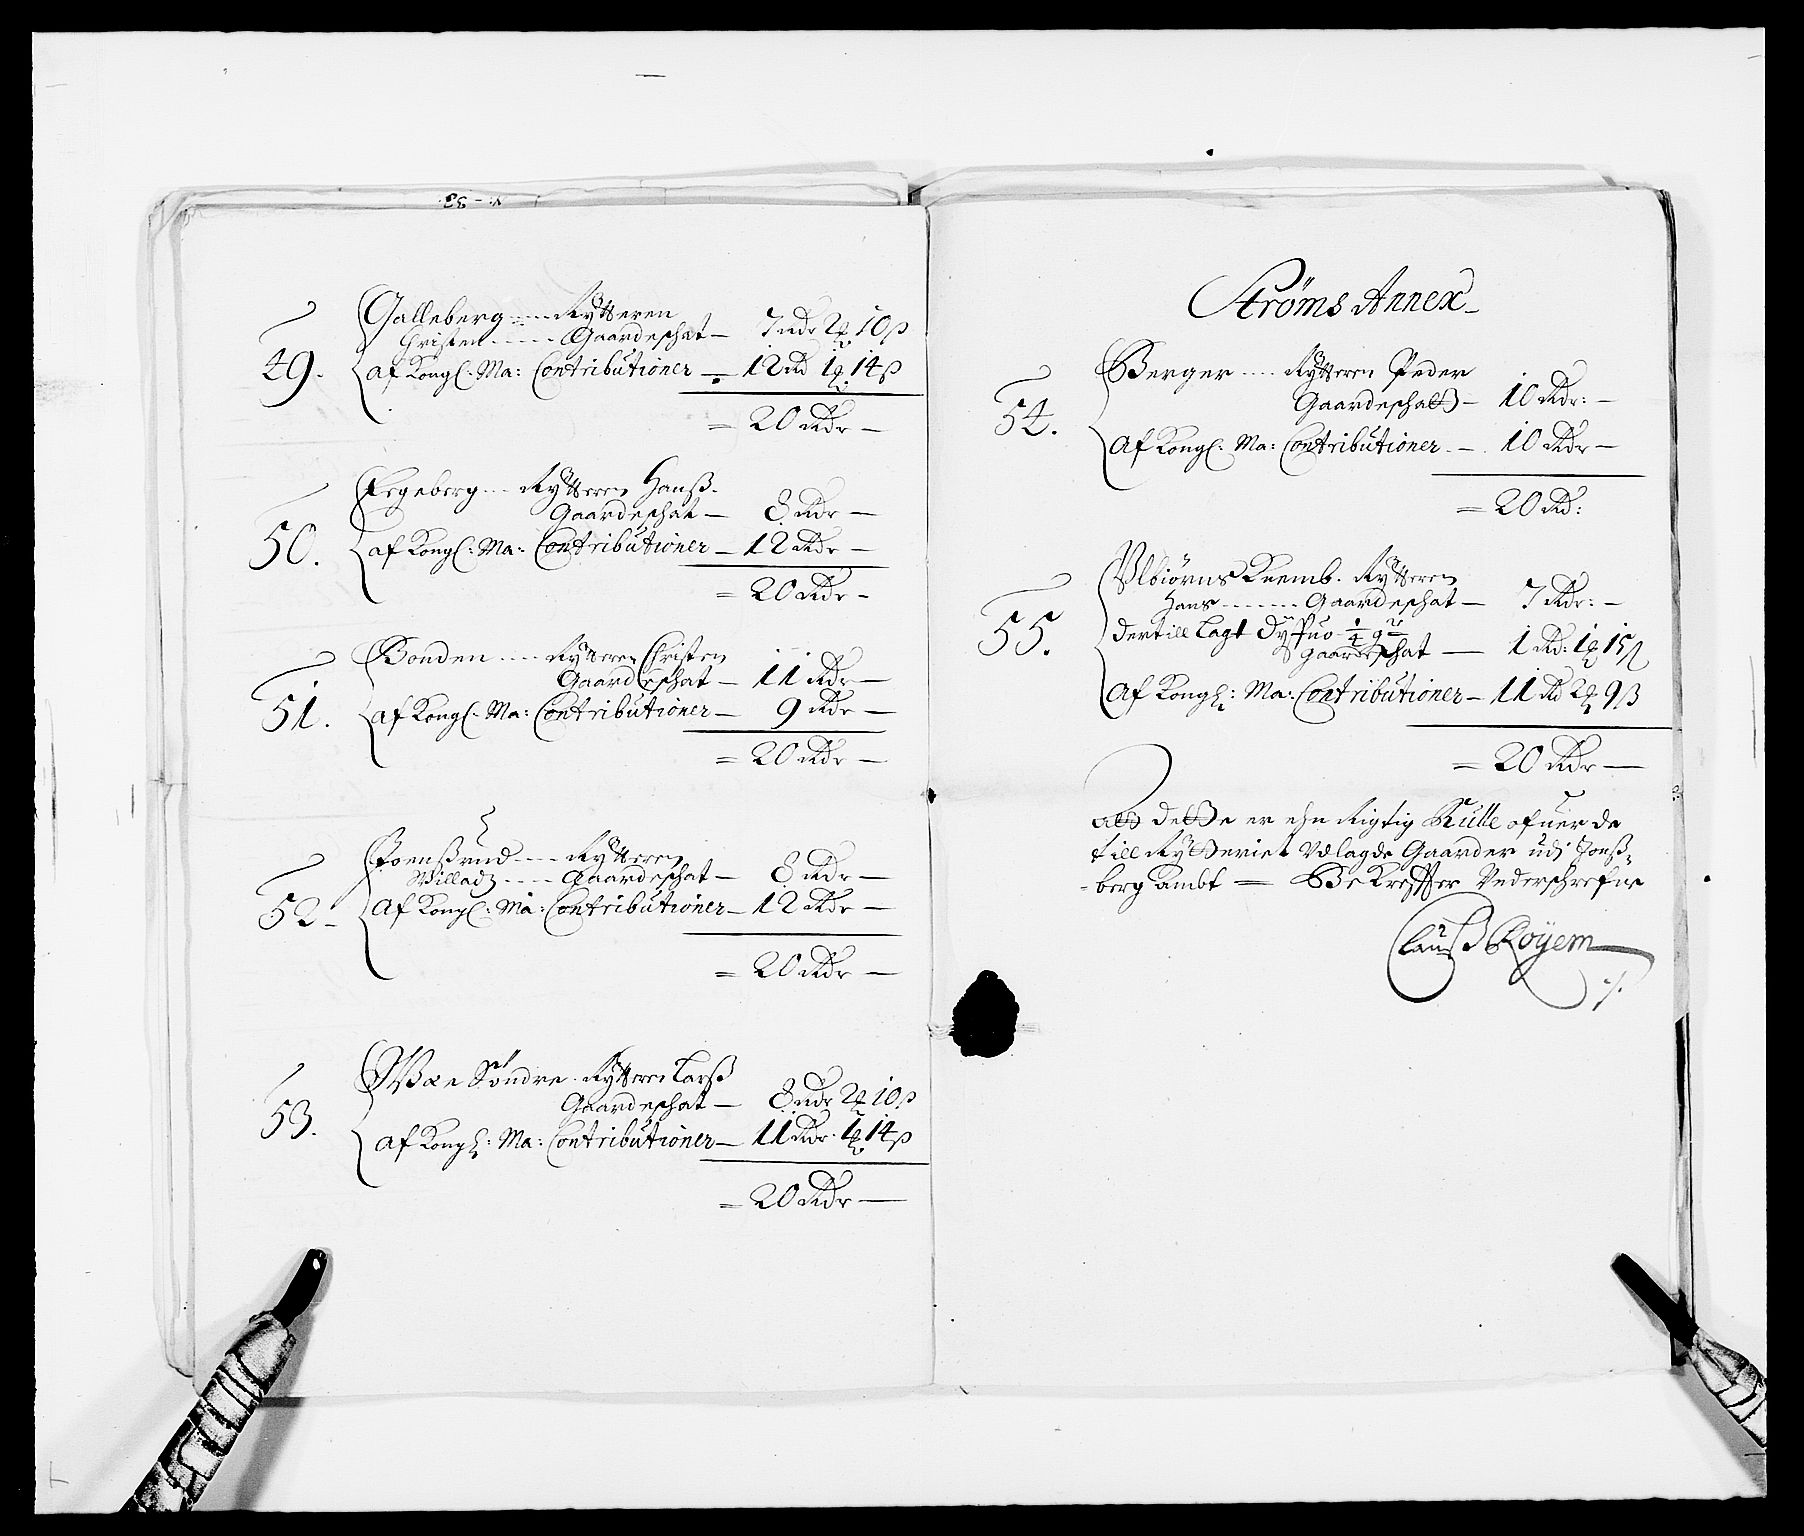 49.
Galleberg ..... Rytteren
Christen ..... Gaardeschat — 7 Rdr 2 ₰ 10 β
af Kongl: Ma: Contributioner — 12 Rd 1 ₰ 14 β
= 20 Rdr —
50.
Egeberg ... Rytteren Hanß.
Gaardeschat — 8 Rdr —
af Kongl: Ma: Contributioner — 12 Rdr —
= 20 Rdr -
51.
Bonden .... Rytteren Christen
Gaardeschat — 11 Rdr —
af Kongl: Ma: Contributioner — 9 Rdr —
= 20 Rdr —
52 -
Joenßrud .... Rytteren
Willadz ..... Gaardeschat — 8 Rdr —
Af Kongl: Ma: Contributioner — 12 Rdr —
= 20 Rdr —
53.
Wæe Söndre. Rytteren Larß
Gaardeschat — 8 Rdr 2 ₰ 10 β
Af Kongl: Ma: Contributioner — 11 Rdr. 1 ₰ 14 β
= 20 Rdr —
Ströms Annex -
54.
Berger .... Rytteren Peder
Gaardeschatt — 10 Rdr: —
Af Kongl: Ma: Contributioner - . 10 Rdr —
= 20 Rd:
55.
Ulbiörns Kiemb. Rytteren
Hans ...... Gaardeschat — 7 Rdr: —
dertill Lagt 1/4
Gaardeschat — 1 Rd: 1 ₰ 15 β
Af Kongl: Ma: Contributioner — 11 Rd 2 ₰ 9 β
= 20 Rdr —
att dette er ehn Rigtig Rulle ofuer de
till Rytteriet Vdlagde Gaarder udi Jonß-
-berg Ambt — Bekrefter Vederschrefne
Lauß Røyem
./.